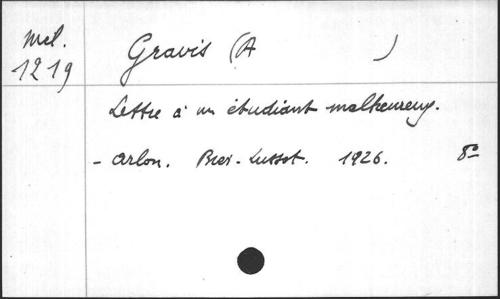 Mél.
1219
Gravis (A )
Lettre à un étudiant malheureux.
- Arlon. 1926. 8°